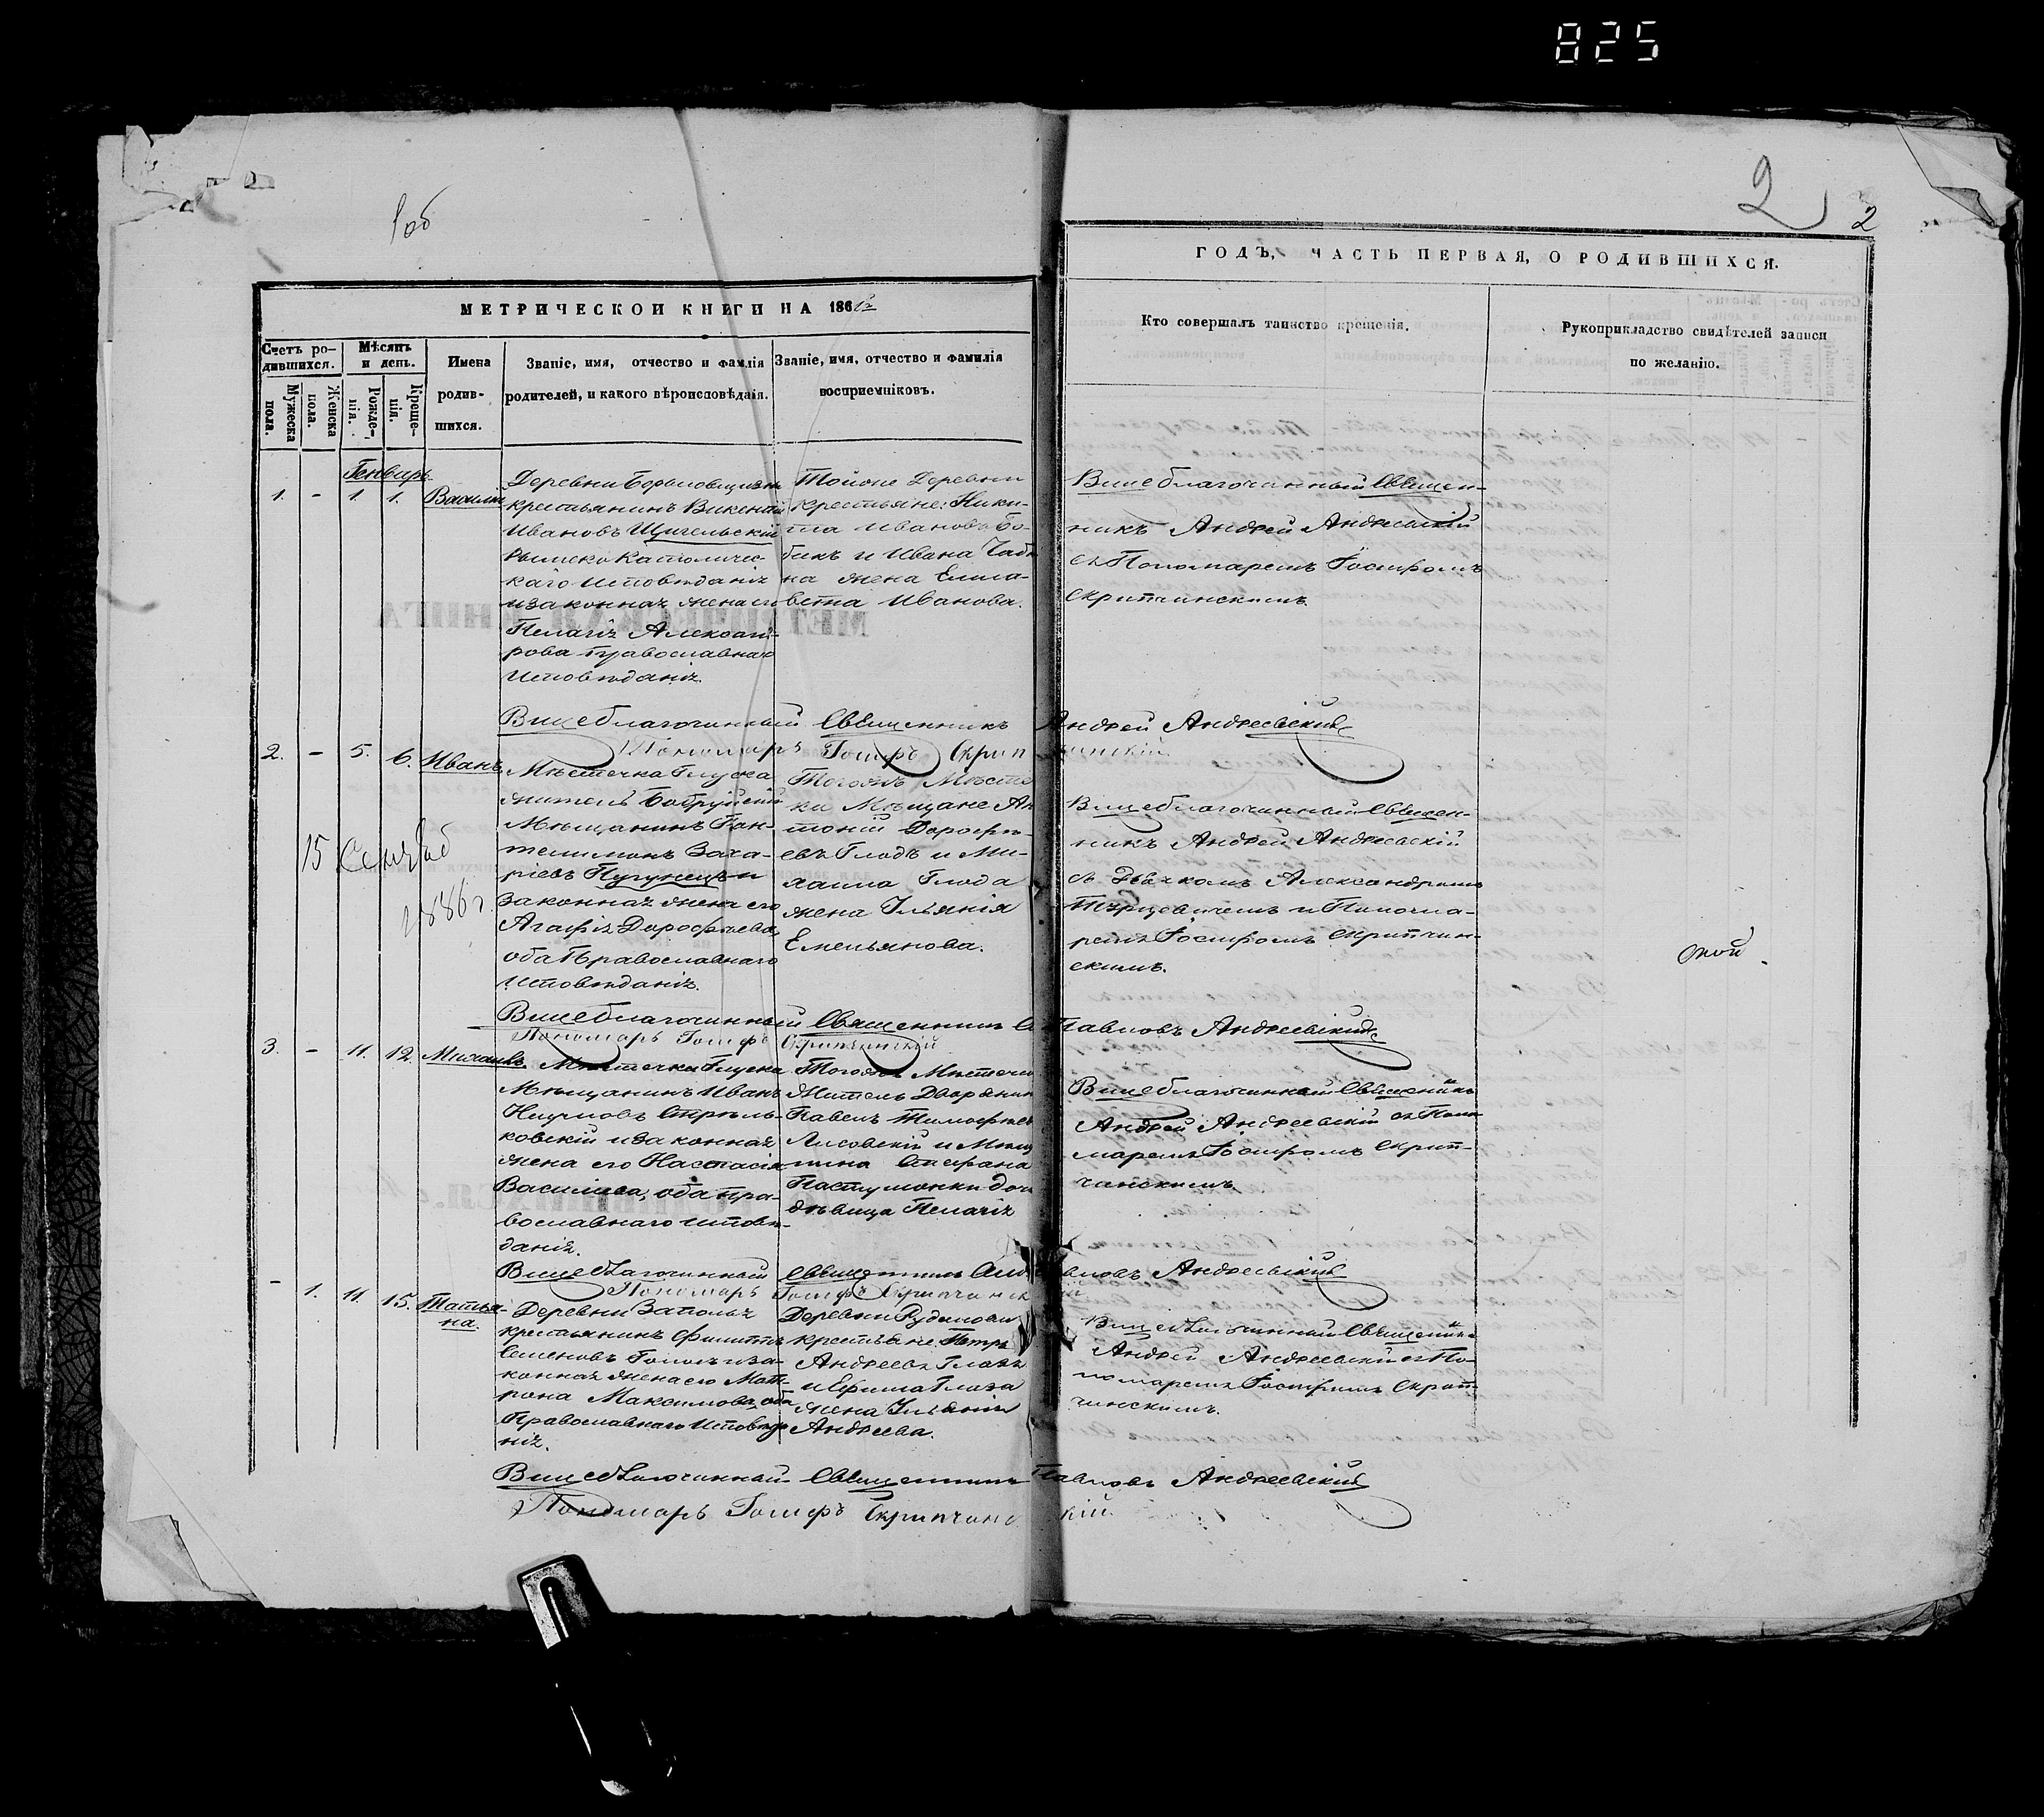 825
2
2
1об
МЕТРИЧЕСКОЙ КНИГИ НА 186
ГОДЪ, ЧАСТЬ ПЕРВАЯ, О РОДИВШИХСЯ.
Счетъ ро-
дившихся.
Мужеска
пола.
Женска
пола.
Мѣсяцъ
и день.
Рожде-
нія.
Креще-
нія.
Имена
родив-
шихся.
Званіе, имя, отчество и фамлія
родителей, и какого вѣроисповѣдаія.
Званіе, имя, отчество и фамилія
восприемніковъ.
Кто совершалъ таинство крещенія.
Рукоприкладство свидѣтелей записи
по желанію.
Генварь
1. - 1 1. Василій
Деревни
крестьянинъ Викентій
Ивановъ
Римско Католичес-
каго Исповѣданія
и законная жена его
Пелагія Александ-
рова Православнаго
Исповѣданія.
Тойже Деревни
Крестьяне: Ники-
та Ивановъ Бо-
бикъ и Ивана
на жена Елиза-
вета Иванова.
Вицеблагочинный Священ-
никъ Андрей Андреевскій
съ Пономаремъ Іосифомъ
Скрипчинскимъ.
Вицеблагочинный Священникъ Андрей Андреевскій
Пономарь Іосифъ Скрипчинскій
2. - 5. 6. Иванъ
Мѣстечка Глуска
житель Бобруйскій
Мѣщанинъ Пан-
телимонъ Заха-
ріевъ и
Законная жена его
Агафія Дорофѣева,
оба Православнаго
Исповѣданія.
Тогожъ Мѣсте
ка Мѣщане Ан
тоній Дорофѣ-
евъ Глодъ и Ми-
хаила Глода
жена Ульянія
Емельянова.
Вицеблагочинный Священ-
никъ Андрей Андреевскій
съ Дьячкомъ Александромъ
и Понома-
ремъ Іосифомъ Скрипчин-
скимъ.
15
1886 г.
Вицеблагочинный Священникъ Павловъ Андреевскій
Пономарь Іосифъ Скрипчинскій
3. - 11. 12. Михаилъ
Мѣстечка Глуска
Мѣщанинъ Иванъ
Наумовъ Стрѣль-
ковскій и законная
жена его Настасія
Васильева, оба Пра-
вославнаго исповѣ-
данія.
Тогожъ Мѣстечка
Житель Дворянин
Павелъ Тимофѣев
Лисовскій и Мѣщ
нина Стефана
доч
дѣвица Пелагія
Вицеблагочинный Священникъ
Андрей Андреевскій съ Поно
маремъ Іосифомъ Скрип-
чинскимъ.
Вицеблагочинный Священникъ Павловъ Андреевскій
Пономарь Іосифъ Скрипчинскій
- 1. 11. 15. Татья-
на.
Деревни Заполья
крестьянинъ Филиппъ
Семеновъ и за-
конная жена его Мат-
рона Максимова, оба
Православнаго Исповѣда
нія.
Деревни
крестьяне Петръ
Андреевъ Глазъ
и Ефима Глаза
жена Ульянія
Андреева.
Вицеблагочинный Священникъ
Андрей Андреевскій съ По-
номаремъ Іосифомъ Скрип-
чинскимъ.
Вицеблагочинный Священникъ Павловъ Андреевскій
Пономарь Іосифъ Скрипчинскій.